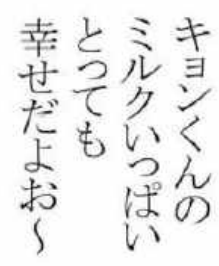 キョンくんの
ミルクいっぱい
とっても
幸せだよお～